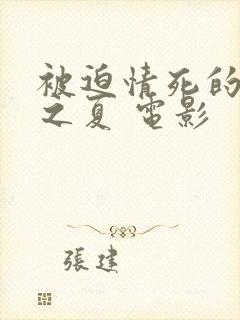 被迫情死的
之夏 電影
張建